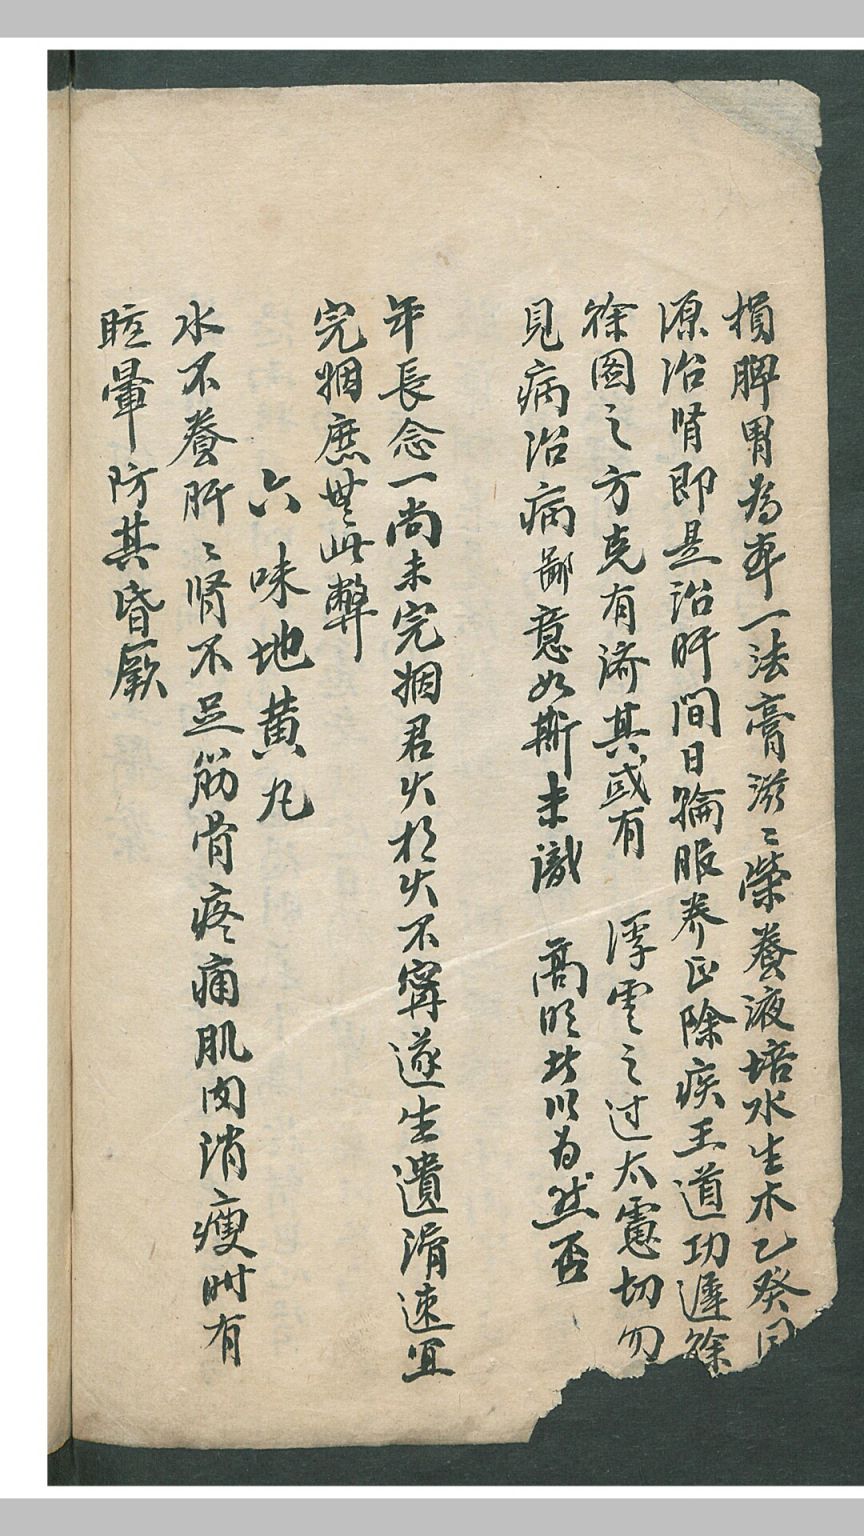 損脾胃為率一法膏滋〻榮養液培水生木乙癸同
源治肾即是治肝間日輪服养正除疾王道功遲徐
徐圖之方克有济其或有 浮雲之过太慮切勿
見病治病鄙意如斯未識 高明者以为然否
年長念一尚未完姻君火相火不寧遂生遺滑速宜
完姻庶無此弊
六味地黄丸
水不養肝〻腎不足筋骨疼痛肌肉消瘦时有
眩暈防其昏厥